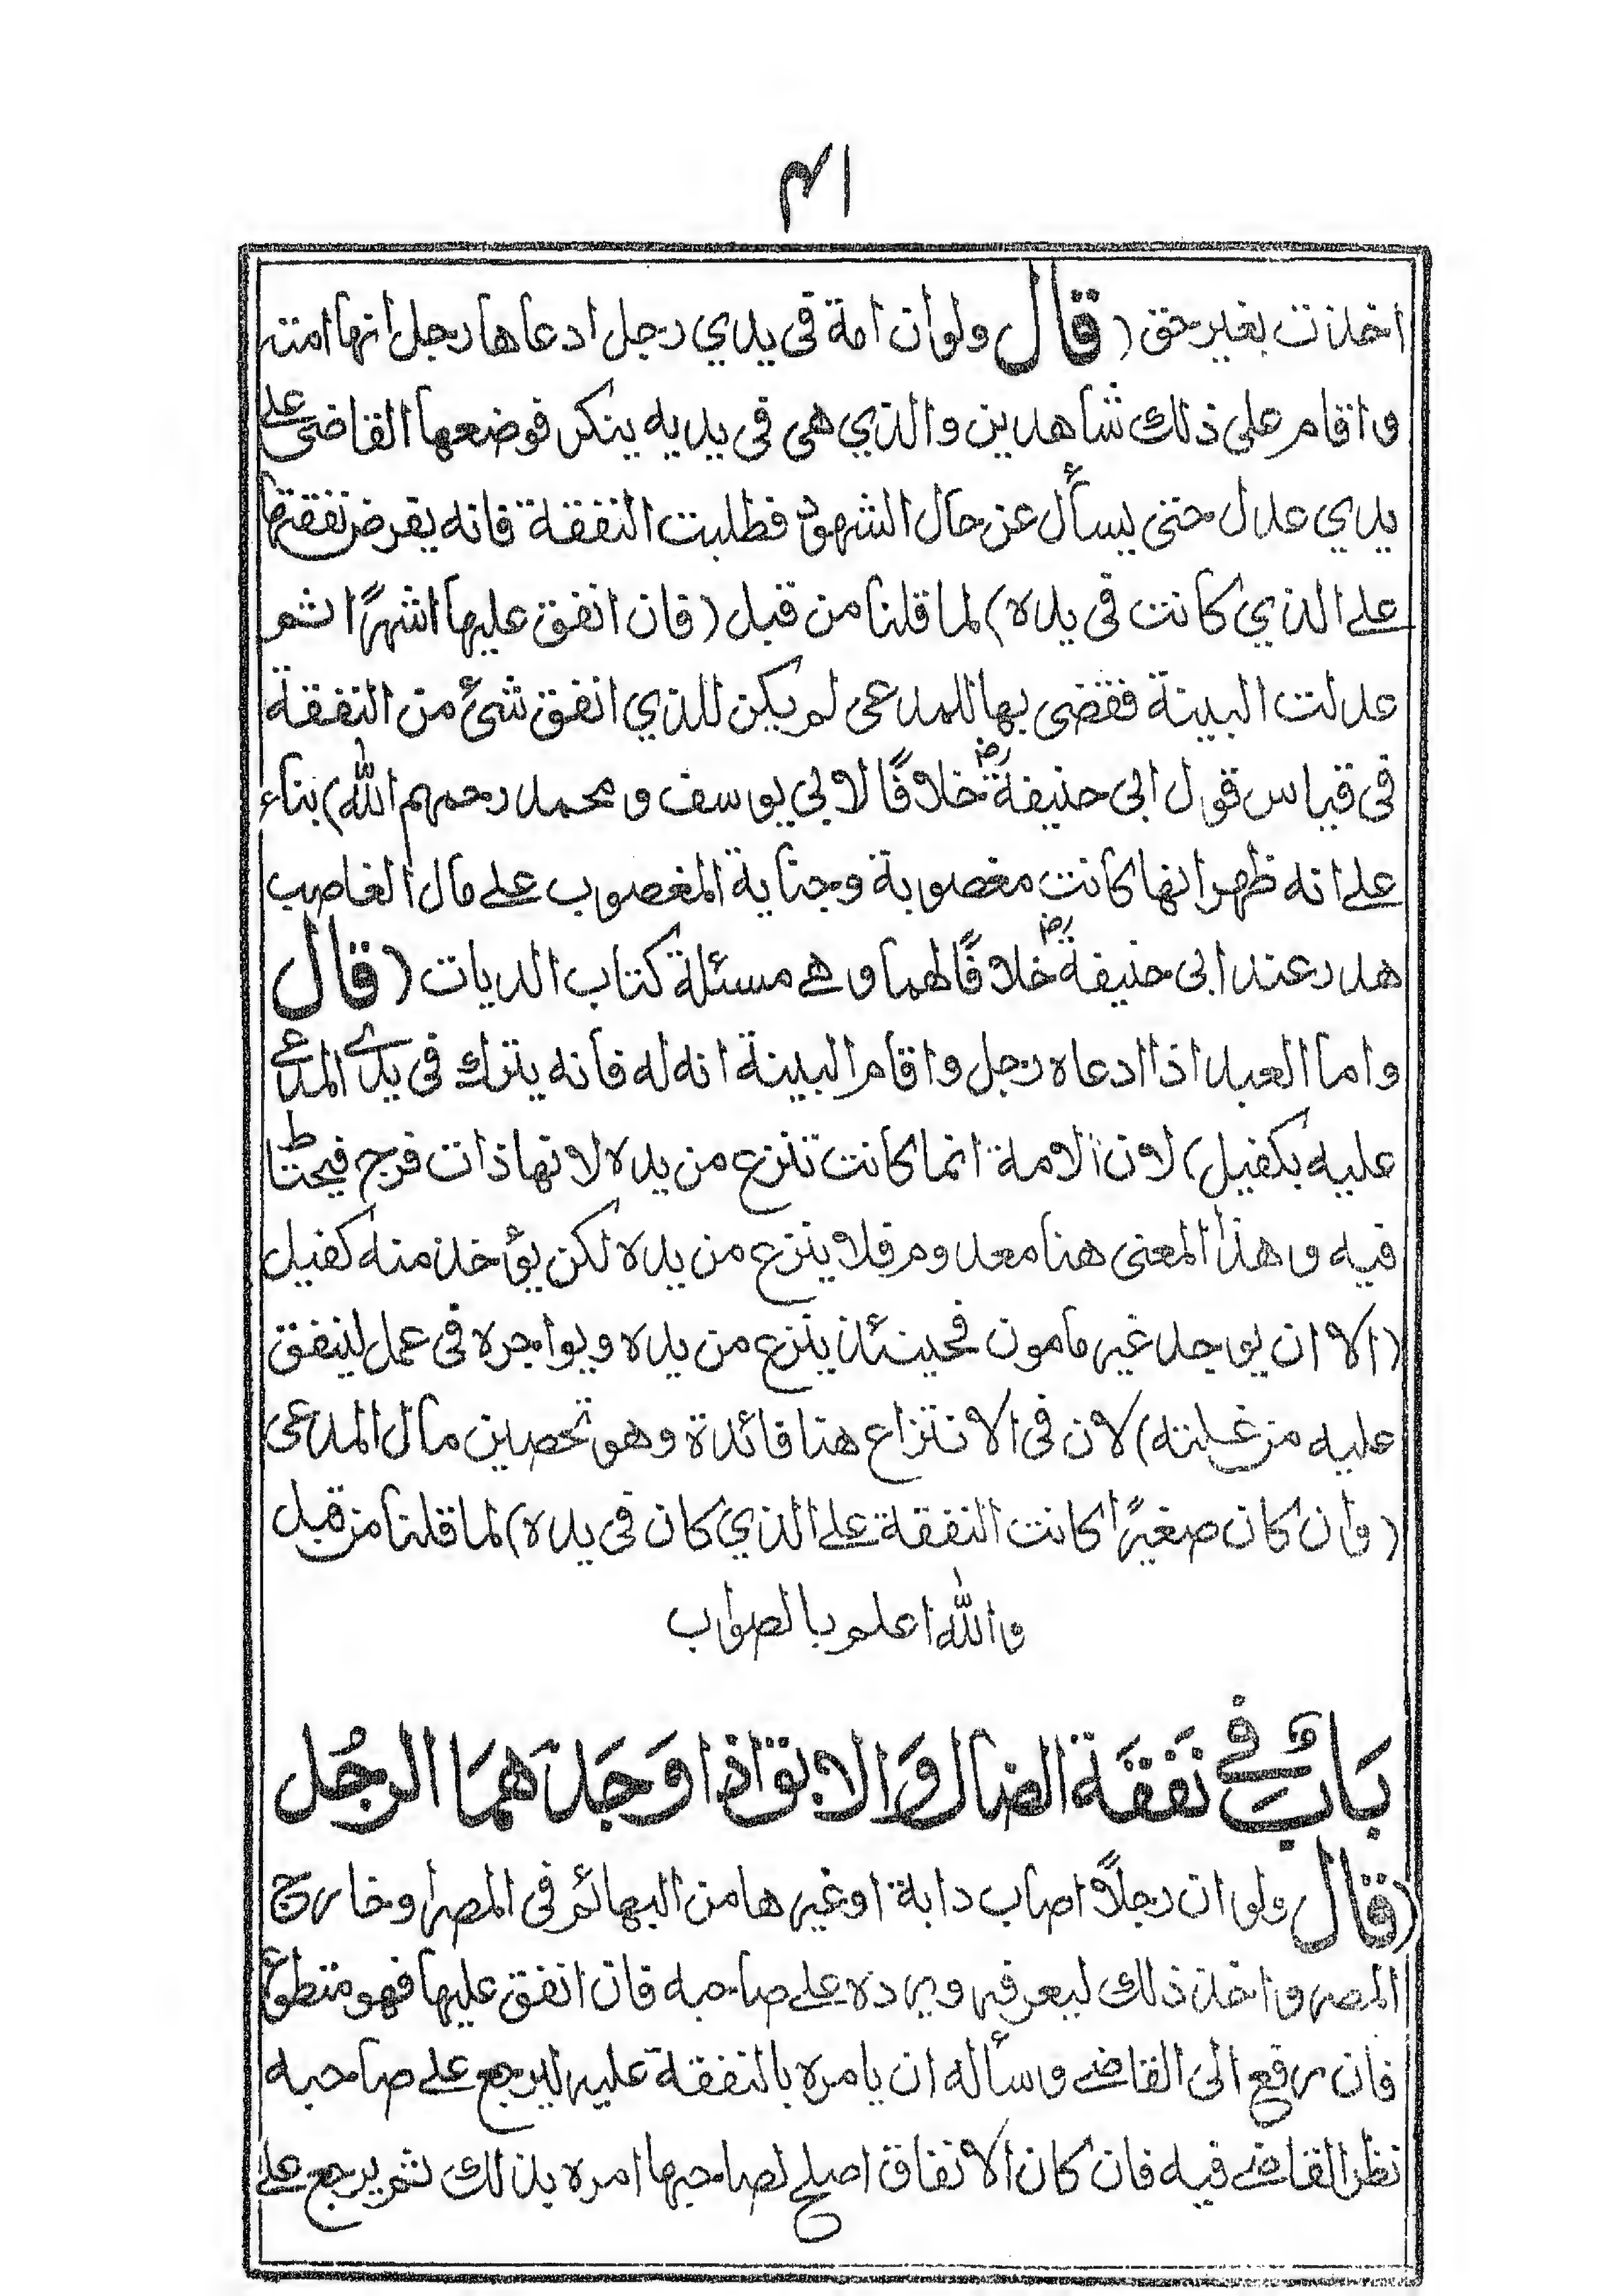 ٨١
اخذت بغير حق (قال ولو ان امة فى يدي رجل ادعاها رجل انها امته
واقام على ذلك شاهدين والذي هى فى يديه ينكر فوضعها القاضى علے
يدي عدل حتى يسأل عن حال الشهود فطلبت النفقة فانه يفرض نفقتها
علے الذي كانت فى يده) لما قلنا من قبل (فان انفق عليها اشهرًا ثم
عدلت البينة فقضى بها للمدعى لم يكن للذي انفق شئ من النفقة
فى قياس قول ابى حنيفة رض خلافًا لابي يوسف ومحمد رحمهم الله) بناء
علے انه ظهر انها كانت مغصوبة وجناية المغصوب علے مال الغاصب
هدر عند ابى حنيفة رض خلافًا لهما وهے مسئلة كتاب الديات (قال
واما العبد اذا ادعاه رجل واقام البينة انه له فانه يترك فى يدے المدعے
عليه بكفيل) لان الامة انما كانت تنزع من يده لانها ذات فرج فيحتاط
فيه وهذا المعنى هنا معدوم فلا ينزع من يده لكن يؤخذ منه كفيل
(الا ان يوجد غير مامون فحينئذ ينزع من يده ويواجره فى عمل لينفق
عليه من غلته) لان فى الانتزاع هنا فائدة وهو تحصين مال المدعى
(وان كان صغيرًا كانت النفقة علے الذي كان فى يده) لما قلنا من قبل
والله اعلم بالصواب
بَابٌ فے نَفَقَة الضال وَالابق اذا وَجَدَهمَا الرجُل
(قال ولو ان رجلًا اصاب دابة او غيرها من البهائم فى المصر او خارج
المصر واخذ ذلك ليعرفه ويرده علے صاحبه فان انفق عليها فهو متطوع
فان رفع الى القاضے وسأله ان يامره بالنفقة عليه ليرجع علے صاحبه
نظر القاضے فيه فان كان الانفاق اصلح لصاحبها امره بذلك ثم يرجع علے